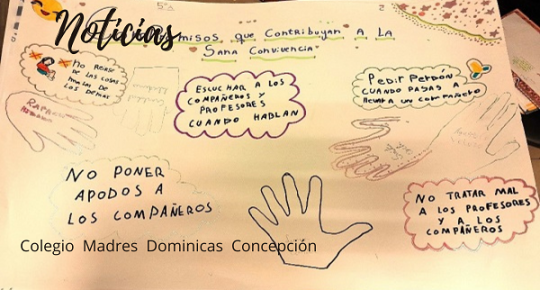 5°A
Noticias
misos, que Contribuyan A LA
Sana Convivencia
No REIRSE
DE LAS COSAS
MALAS DE
LOS DEMÁS
ESCUCHAR A LOS
COMPAÑEROS Y
PROFESORES
CUANDO HABLAN
PEDIR PERDÓN
CUANDO PASAS A
UN COMPAÑERO
NO PONER
APODOS A
LOS COMPAÑEROS
NO TRATAR MAL
A LOS PROFESORES
Y A LOS
COMPAÑEROS
Colegio Madres Dominicas Concepción